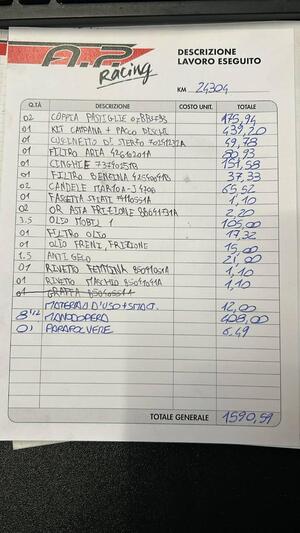 A.P.
Racing
DESCRIZIONE
LAVORO ESEGUITO
KM 24304
Q.TÀ DESCRIZIONE COSTO UNIT. TOTALE
02 COPPIA PASTIGLIE 175,94
01 KIT CAMPANA + PACCO DISCHI 439,20
01 CUSCINETTO DI STERZO 49,78
01 FILTRO ARIA 42610201A 80,93
01 CINGHIE 151,58
01 FILTRO BENZINA 37,33
02 CANDELE MAR10A-J 65,52
01 FASCETTA 1,10
02 OR ASTA FRIZIONE 2,20
3.5 OLIO MOBIL 1 105,00
01 FILTRO OLIO 17,32
01 OLIO FRENI, FRIZIONE 15,00
1.5 ANTIGELO 21,00
01 RIVETTO FEMMINA 85011061A 1,10
01 RIVETTO MASCHIO 1,10
01 GRAFFA
MATERIALI D'USO + SMALT. 12,00
8 1/2 MANODOPERA 408,00
01 PARAPOLVERE 6.49
TOTALE GENERALE 1590,59